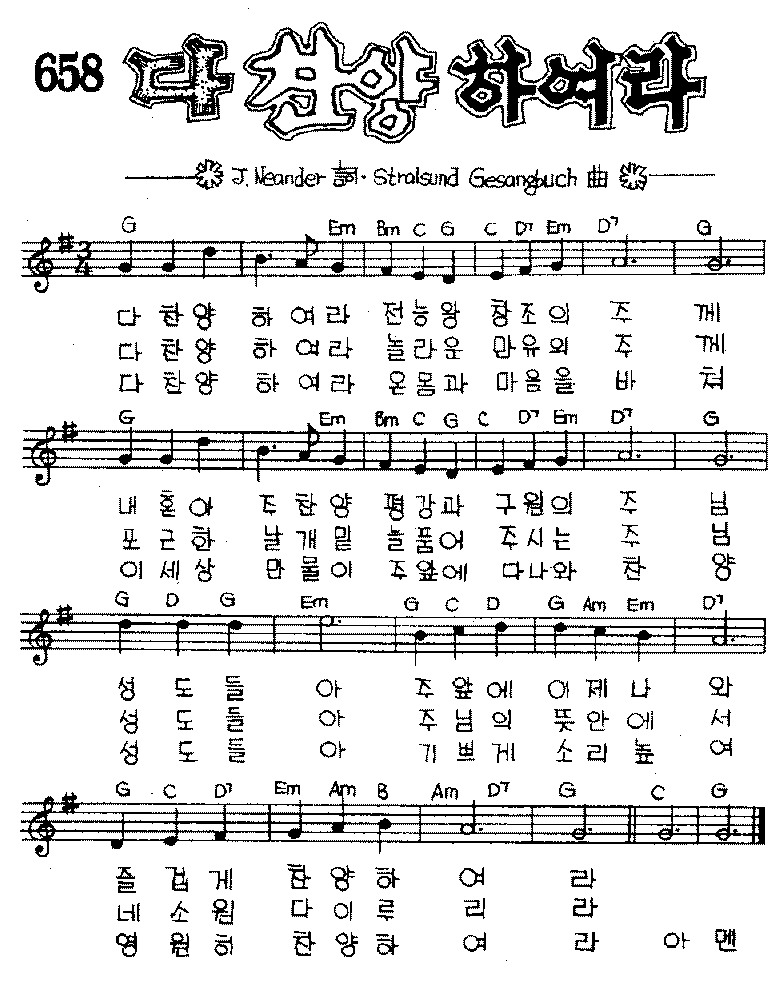 658 다 찬양 하여라
J. Neander 詞 · Stralsund Gesangbuch 曲
G Em Bm C G C D7 Em D7 G
3 4
다 찬 양 하 여 라 전 능 왕 창 조 의 주 께
다 찬 양 하 여 라 놀 라 운 만 유 의 주 께
다 찬 양 하 여 라 온 몸 과 마 음 을 바 쳐
G Em Bm C G C D7 Em D7 G
내 혼 아 주 찬 양 평 강 과 구 원 의 주 님
포 근 한 날 개 밑 늘 품 어 주 시 는 주 님
이 세 상 만 물 이 주 앞 에 다 나 와 찬 양
G D G Em G C D G Am Em D7
성 도 들 아 주 앞 에 이 제 나 와
성 도 들 아 주 님 의 뜻 안 에 서
성 도 들 아 기 쁘 게 소 리 높 여
G C D7 Em Am B Am D7 G C G
즐 겁 게 찬 양 하 여 라
네 소 원 다 이 루 리 라
영 원 히 찬 양 하 여 라 아 멘